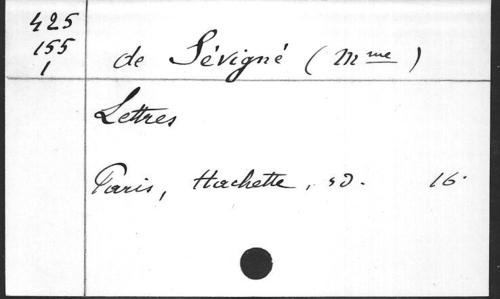 425
155
1
de Sévigné (Mme)
Lettres
Paris, Hachette, sd. 16.